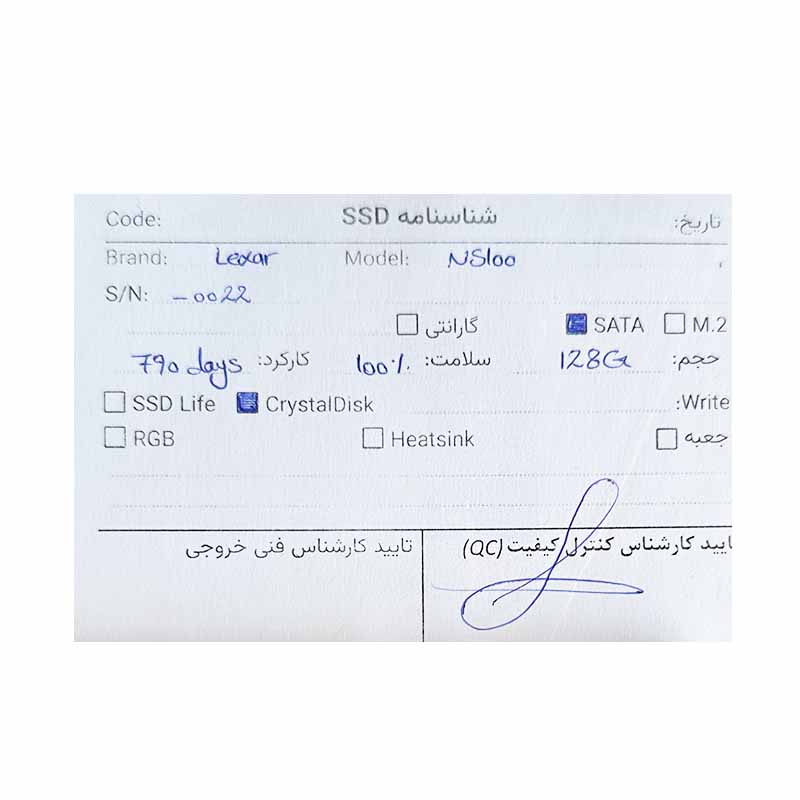 Code: شناسنامه SSD تاریخ:
Brand: Lexar Model: NS100
S/N: -0022
گارانتی SATA M.2
حجم: 128G سلامت: 100% کارکرد: 790 days
SSD Life CrystalDisk Write:
RGB Heatsink جعبه
تایید کارشناس فنی خروجی
ایید کارشناس کنترل کیفیت (QC)